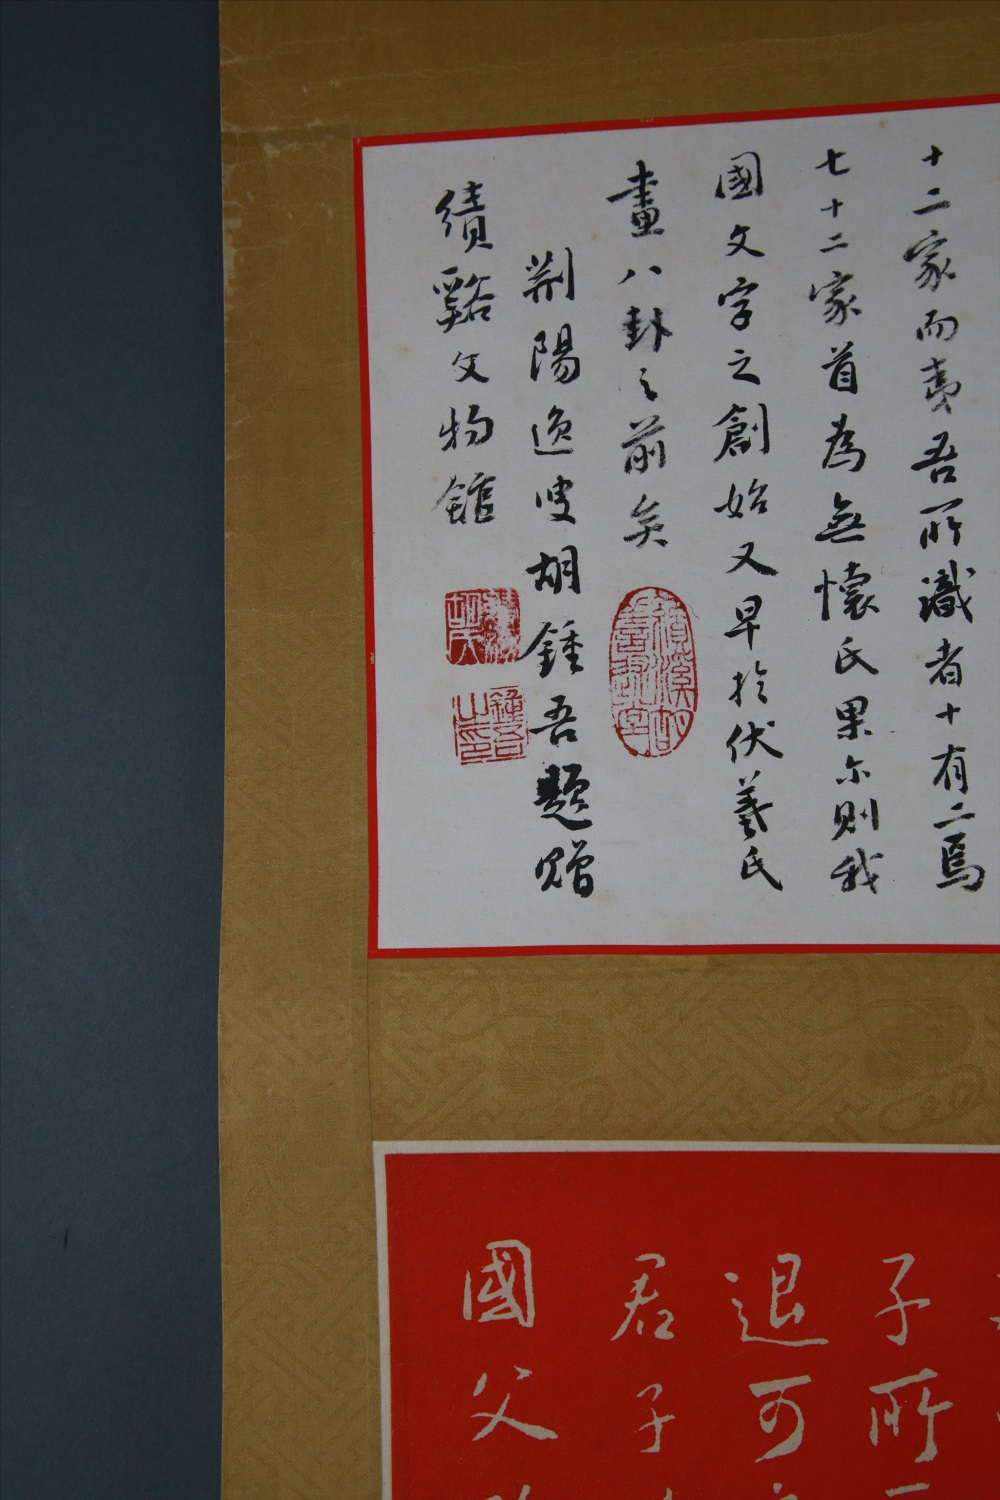 十二家而夷吾所識者十有二焉
七十二家首為無懷氏果尔則我
國文字之創始又早於伏羲氏
畫八卦之前矣
荆陽逸叟胡鍾吾題贈
績谿文物館
鍾吾之印
子所
退可
君子
國父